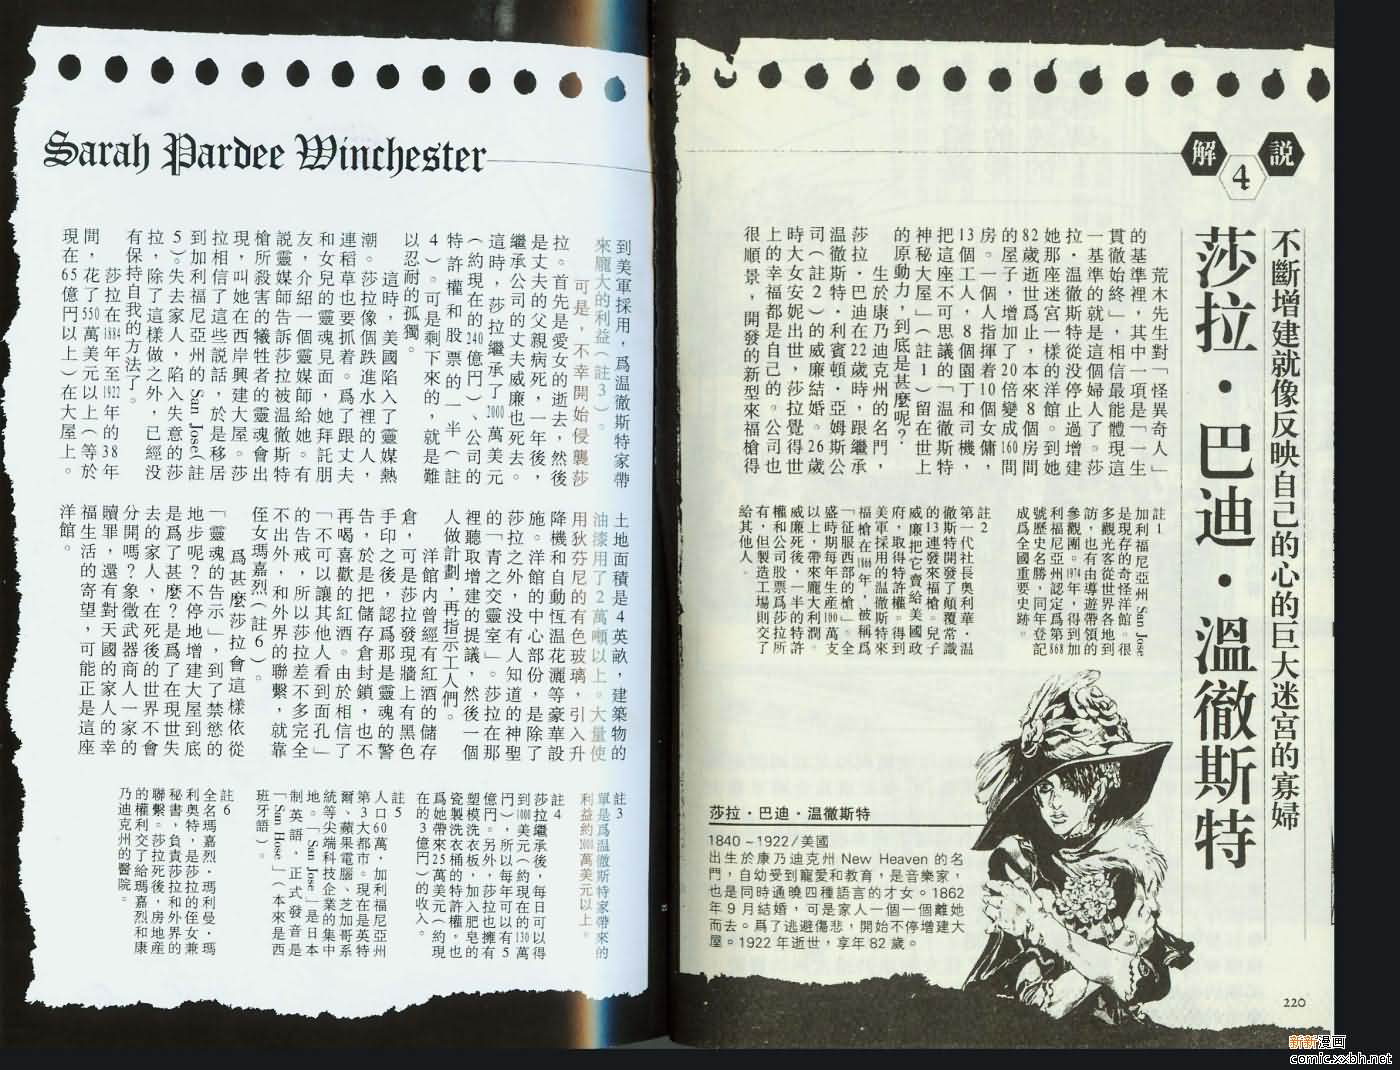 解
4
説
不斷增建就像反映自己的心的巨大迷宮的寡婦
莎拉・巴迪・溫徹斯特
荒木先生對「怪異奇人」
的基準裡，其中一項是「一生
貫徹始終」，相信最能體現這
一基準的就是這個婦人了。莎
拉・温徹斯特從没停止過增建
她那座迷宮一樣的洋館。到她
82歲逝世爲止，本來8個房間
的屋子，增加了20倍變成160間
房。一個人指揮着10個女傭，
13個工人，8個園丁和司機，
把這座不可思議的「温徹斯特
神秘大屋」（註1）留在世上
的原動力，到底是甚麼呢？
生於康乃迪克州的名門，
莎拉・巴迪在22歲時，跟繼承
温徹斯特・利賓頓・亞姆斯公
司（註2）的威廉結婚。26歲
時大女安妮出世，莎拉覺得世
上的幸福都是自己的。公司也
很順景，開發的新型來福槍得
註1
加利福尼亞州 San Jose
是現存的奇怪洋館。很
多觀光客從世界各地到
訪，也有由導遊帶領的
參觀團。1974年，得到加
利福尼亞州認定爲第868
號歷史名勝，同年登記
成爲全國重要史跡。
註2
第一代社長奧利華・温
徹斯特開發了顛覆常識
的13連發來福槍。兒子
威廉把它賣給美國政
府，取得特許權。得到
美軍採用的温徹斯特來
福槍在1866年，被稱爲
「征服西部的槍」。全
盛時期每年生産180萬支
以上，帶來龐大利潤。
威廉死後，一半的特許
權和公司股票爲莎拉所
有，但製造工場則交了
給其他人。
莎拉・巴迪・温徹斯特
1840～1922/美國
出生於康乃迪克州 New Heaven 的名
門，自幼受到寵愛和教育，是音樂家，
也是同時通曉四種語言的才女。1862
年9月結婚，可是家人一個一個離她
而去。爲了逃避傷悲，開始不停增建大
屋。1922年逝世，享年82歲。
220
Sarah Pardee Winchester
到美軍採用，爲温徹斯特家帶
來龐大的利益（註3）。
可是，不幸開始侵襲莎
拉。首先是愛女的逝去，然後
是丈夫的父親病死，一年後，
繼承公司的丈夫威廉也死去。
這時，莎拉繼承了2000萬美元
（約現在的240億円）、公司的
特許權和股票的一半（註
4）。可是剩下來的，就是難
以忍耐的孤獨。
這時，美國陷入了靈媒熱
潮。莎拉像個跌進水裡的人，
連稻草也要抓着。爲了跟丈夫
和女兒的靈魂見面，她拜託朋
友，介紹一個靈媒師給她。有
説靈媒師告訴莎拉被温徹斯特
槍所殺害的犧牲者的靈魂會出
現，叫她在西岸興建大屋。莎
拉相信了這些説話，於是移居
到加利福尼亞州的 San Jose（註
5）。失去家人，陷入失意的莎
拉，除了這樣做之外，已經没
有保持自我的方法了。
莎拉在1884年至1922年的38年
間，花了550萬美元以上（等於
現在65億円以上）在大屋上。
土地面積是4英畝，建築物的
油漆用了2萬噸以上。大量使
用狄芬尼的有色玻璃，引入升
降機和自動恆温花灑等豪華設
施。洋館的中心部份，是除了
莎拉之外，没有人知道的神聖
的「青之交靈室」。莎拉在那
裡聽取增建的提議，然後一個
人做計劃，再指示工人們。
洋館内曾經有紅酒的儲存
倉，可是莎拉發現牆上有黑色
手印之後，認爲那是靈魂的警
告，於是把儲存倉封鎖，也不
再喝喜歡的紅酒。由於相信了
「不可以讓其他人看到面孔」
的告戒，所以莎拉差不多完全
不出外，和外界的聯繫，就靠
侄女瑪嘉烈（註6）。
爲甚麼莎拉會這樣依從
「靈魂的告示」，到了禁慾的
地步呢？不停地增建大屋到底
是爲了甚麼？是爲了在現世失
去的家人，在死後的世界不會
分開嗎？象徵武器商人一家的
贖罪，還有對天國的家人的幸
福生活的寄望，可能正是這座
洋館。
註3
單是爲温徹斯特家帶來的
利益約2000萬美元以上。
註4
莎拉繼承後，每日可以得
到1000美元（約現在的130萬
円），所以每年可以有5
億円。另外，莎拉也擁有
塑模洗衣板，加入肥皂的
瓷製洗衣桶的特許權，也
爲她帶來25萬美元（約現
在的3億円）的收入。
註5
人口60萬，加利福尼亞州
第3大都市。現在是英特
爾、蘋果電腦、芝加哥系
統等尖端科技企業的集中
地。「San Jose」是日本
制英語，正式發音是
「San Hose」（本來是西
班牙語）。
註6
全名瑪嘉烈・瑪利曼・瑪
利奧特，是莎拉的侄女兼
秘書，負責莎拉和外界的
聯繫。莎拉死後，房地産
的權利交了給瑪嘉烈和康
乃迪克州的醫院。
新新漫画
comic.xxbh.net